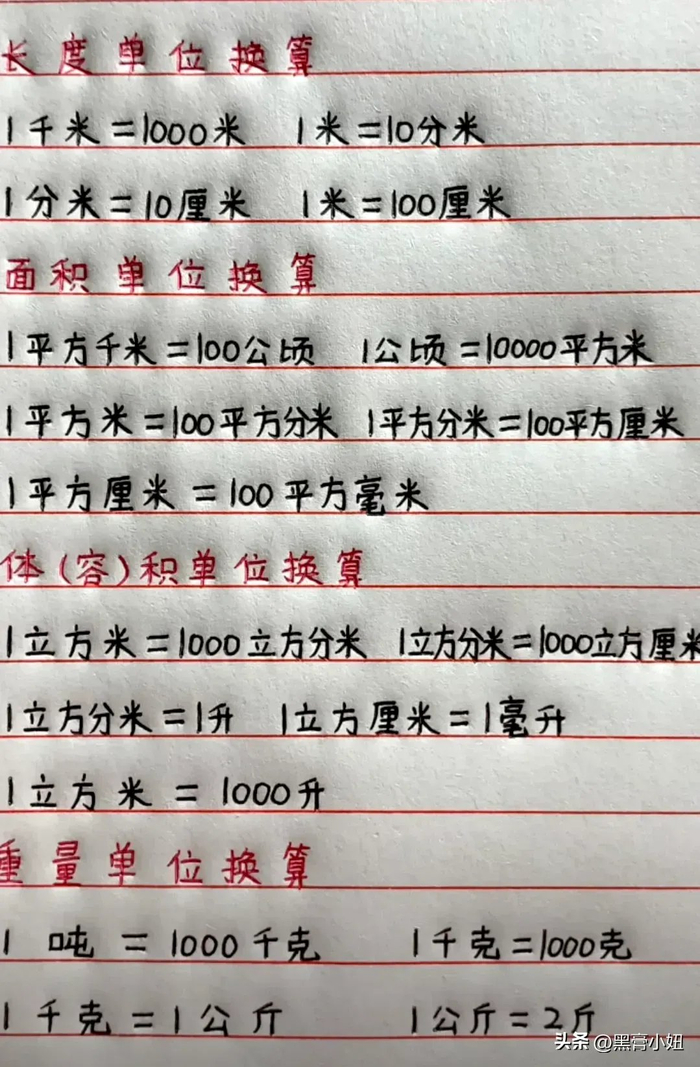 长度单位换算
1千米=1000米 1米=10分米
1分米=10厘米 1米=100厘米
面积单位换算
1平方千米=100公顷 1公顷=10000平方米
1平方米=100平方分米 1平方分米=100平方厘米
1平方厘米=100平方毫米
体(容)积单位换算
1立方米=1000立方分米 1立方分米=1000立方厘米
1立方分米=1升 1立方厘米=1毫升
1立方米=1000升
重量单位换算
1吨=1000千克 1千克=1000克
1千克=1公斤 1公斤=2斤
头条 @黑膏小妞